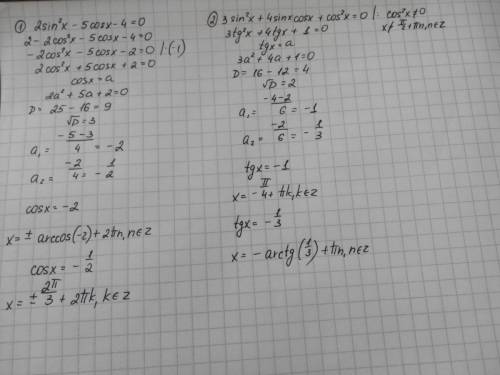 ① 2sin²x - 5cosx - 4 = 0
2 - 2cos²x - 5cosx - 4 = 0
-2cos²x - 5cosx - 2 = 0 /·(-1)
2cos²x + 5cosx + 2 = 0
cosx = a
2a² + 5a + 2 = 0
D = 25 - 16 = 9
√D = 3
a₁ = (-5-3)/4 = -2
a₂ = -2/4 = -1/2
cosx = -2
x = ± arccos(-2) + 2πn, n∈z
cosx = -1/2
x = ± 2π/3 + 2πk, k∈z
② 3sin²x + 4sinxcosx + cos²x = 0 /: cos²x ≠ 0
x ≠ π/2 + πn, n∈z
3tg²x + 4tgx + 1 = 0
tgx = a
3a² + 4a + 1 = 0
D = 16 - 12 = 4
√D = 2
a₁ = (-4-2)/6 = -1
a₂ = -2/6 = -1/3
tgx = -1
x = -π/4 + πk, k∈z
tgx = -1/3
x = -arctg(1/3) + πn, n∈z